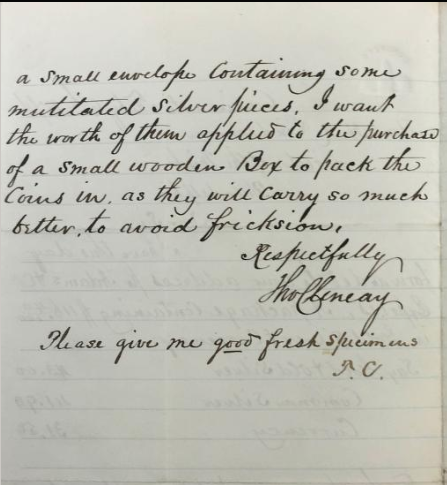 a small envelope Containing some
mutilated silver pieces. I want
the worth of them applied to the purchase
of a small wooden Box to pack the
Coins in. as they will Carry so much
better, to avoid fricksion.
Respectfully
Tho Cleneay
Please give me good fresh specimens
T. C.